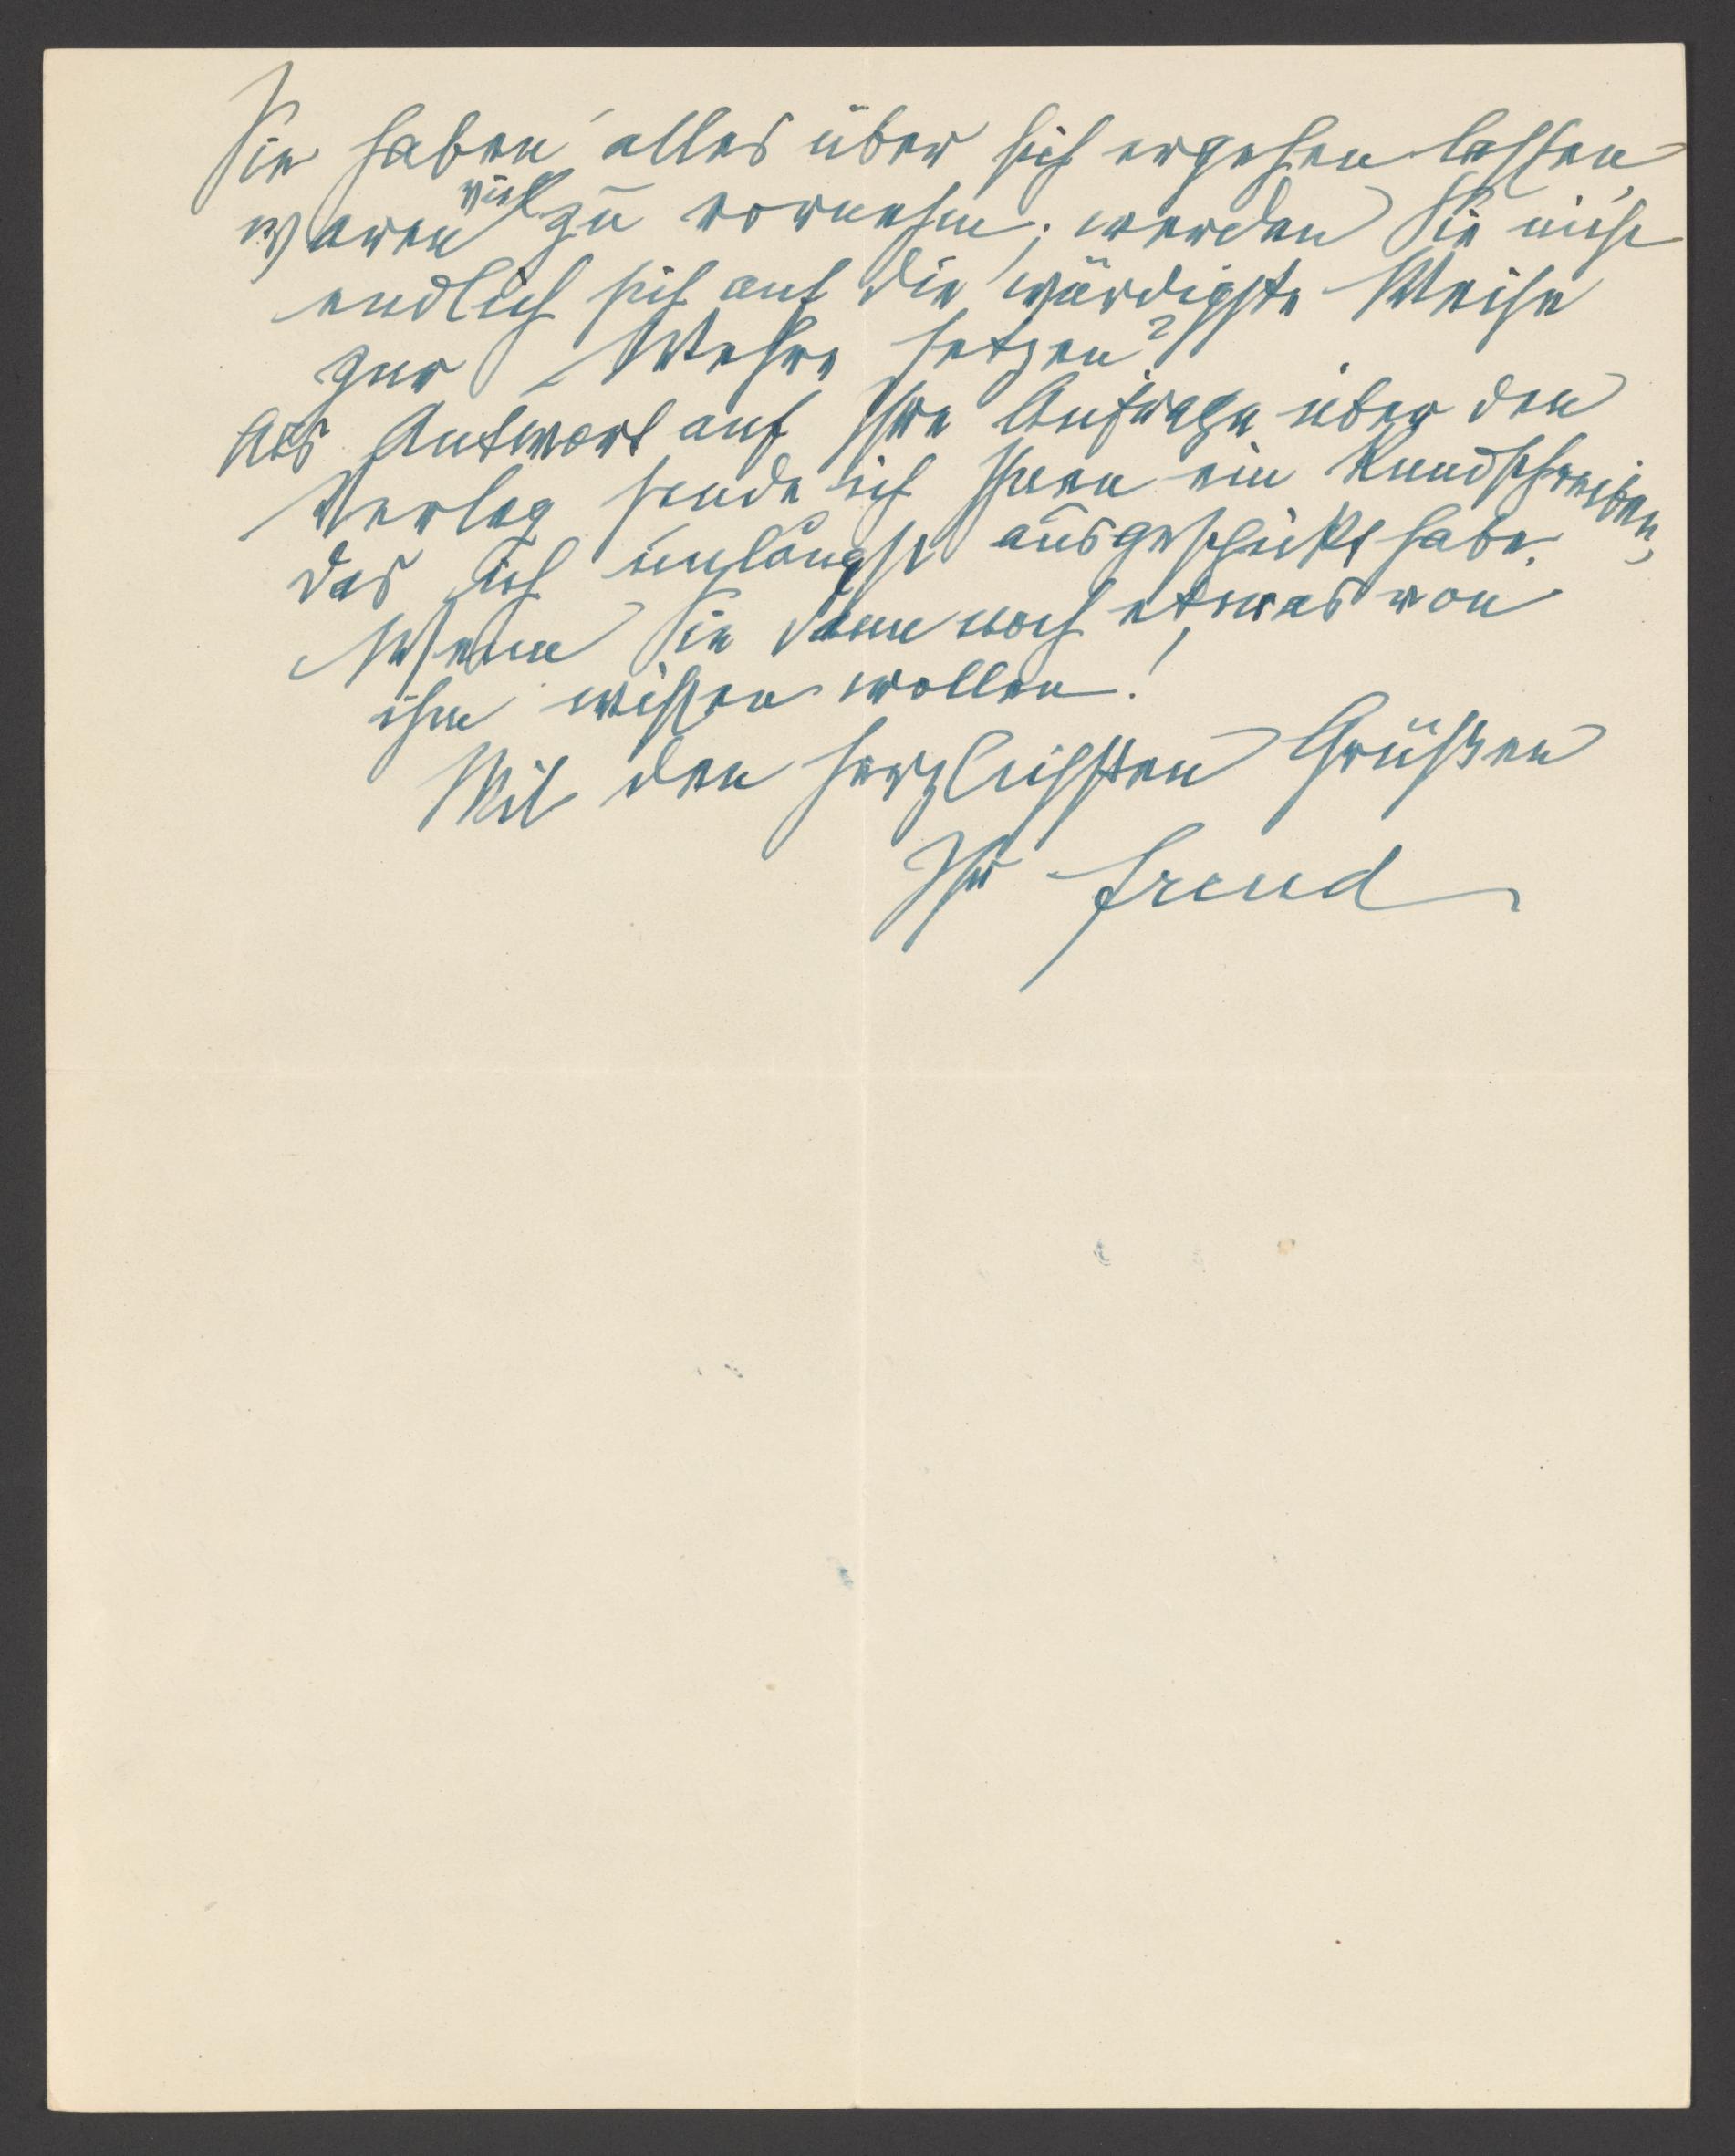 Sie haben alles über sich ergehen lassen,
waren viel zu vornehm; werden Sie nicht
endlich sich auf die würdigste Weise
zur Wehre setzen?
Als Antwort auf Ihre Anfrage über den
Verlag sende ich Ihnen ein Rundschreiben,
das ich unlängst ausgeschickt habe.
Wenn Sie dann noch etwas von
ihm wissen wollen!
Mit den herzlichsten Grüßen
Ihr Freud